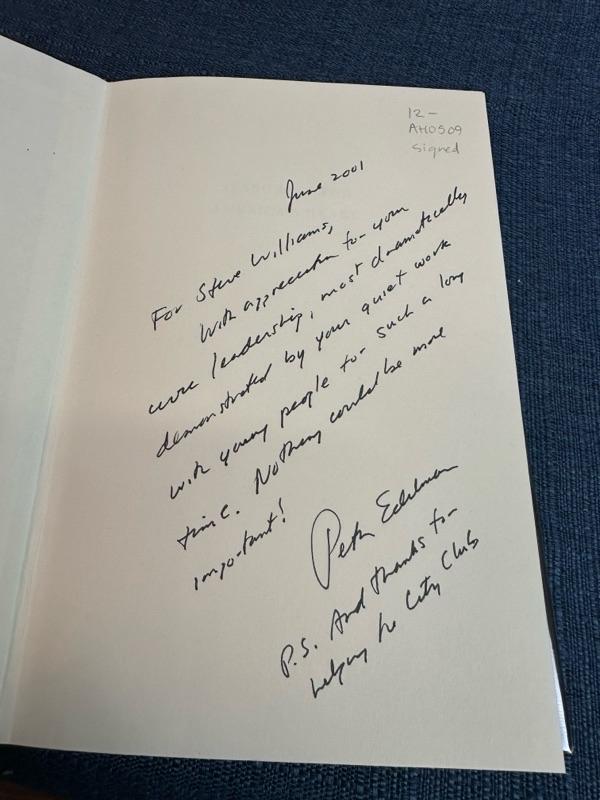 12-
AH0509
signed
June 2001
For Steve Williams,
With appreciation for your
civic leadership, most dramatically
demonstrated by your quiet work
with young people for such a long
time. Nothing could be more
important!
Peter Edelman
P.S. And thanks for
helping the City Club